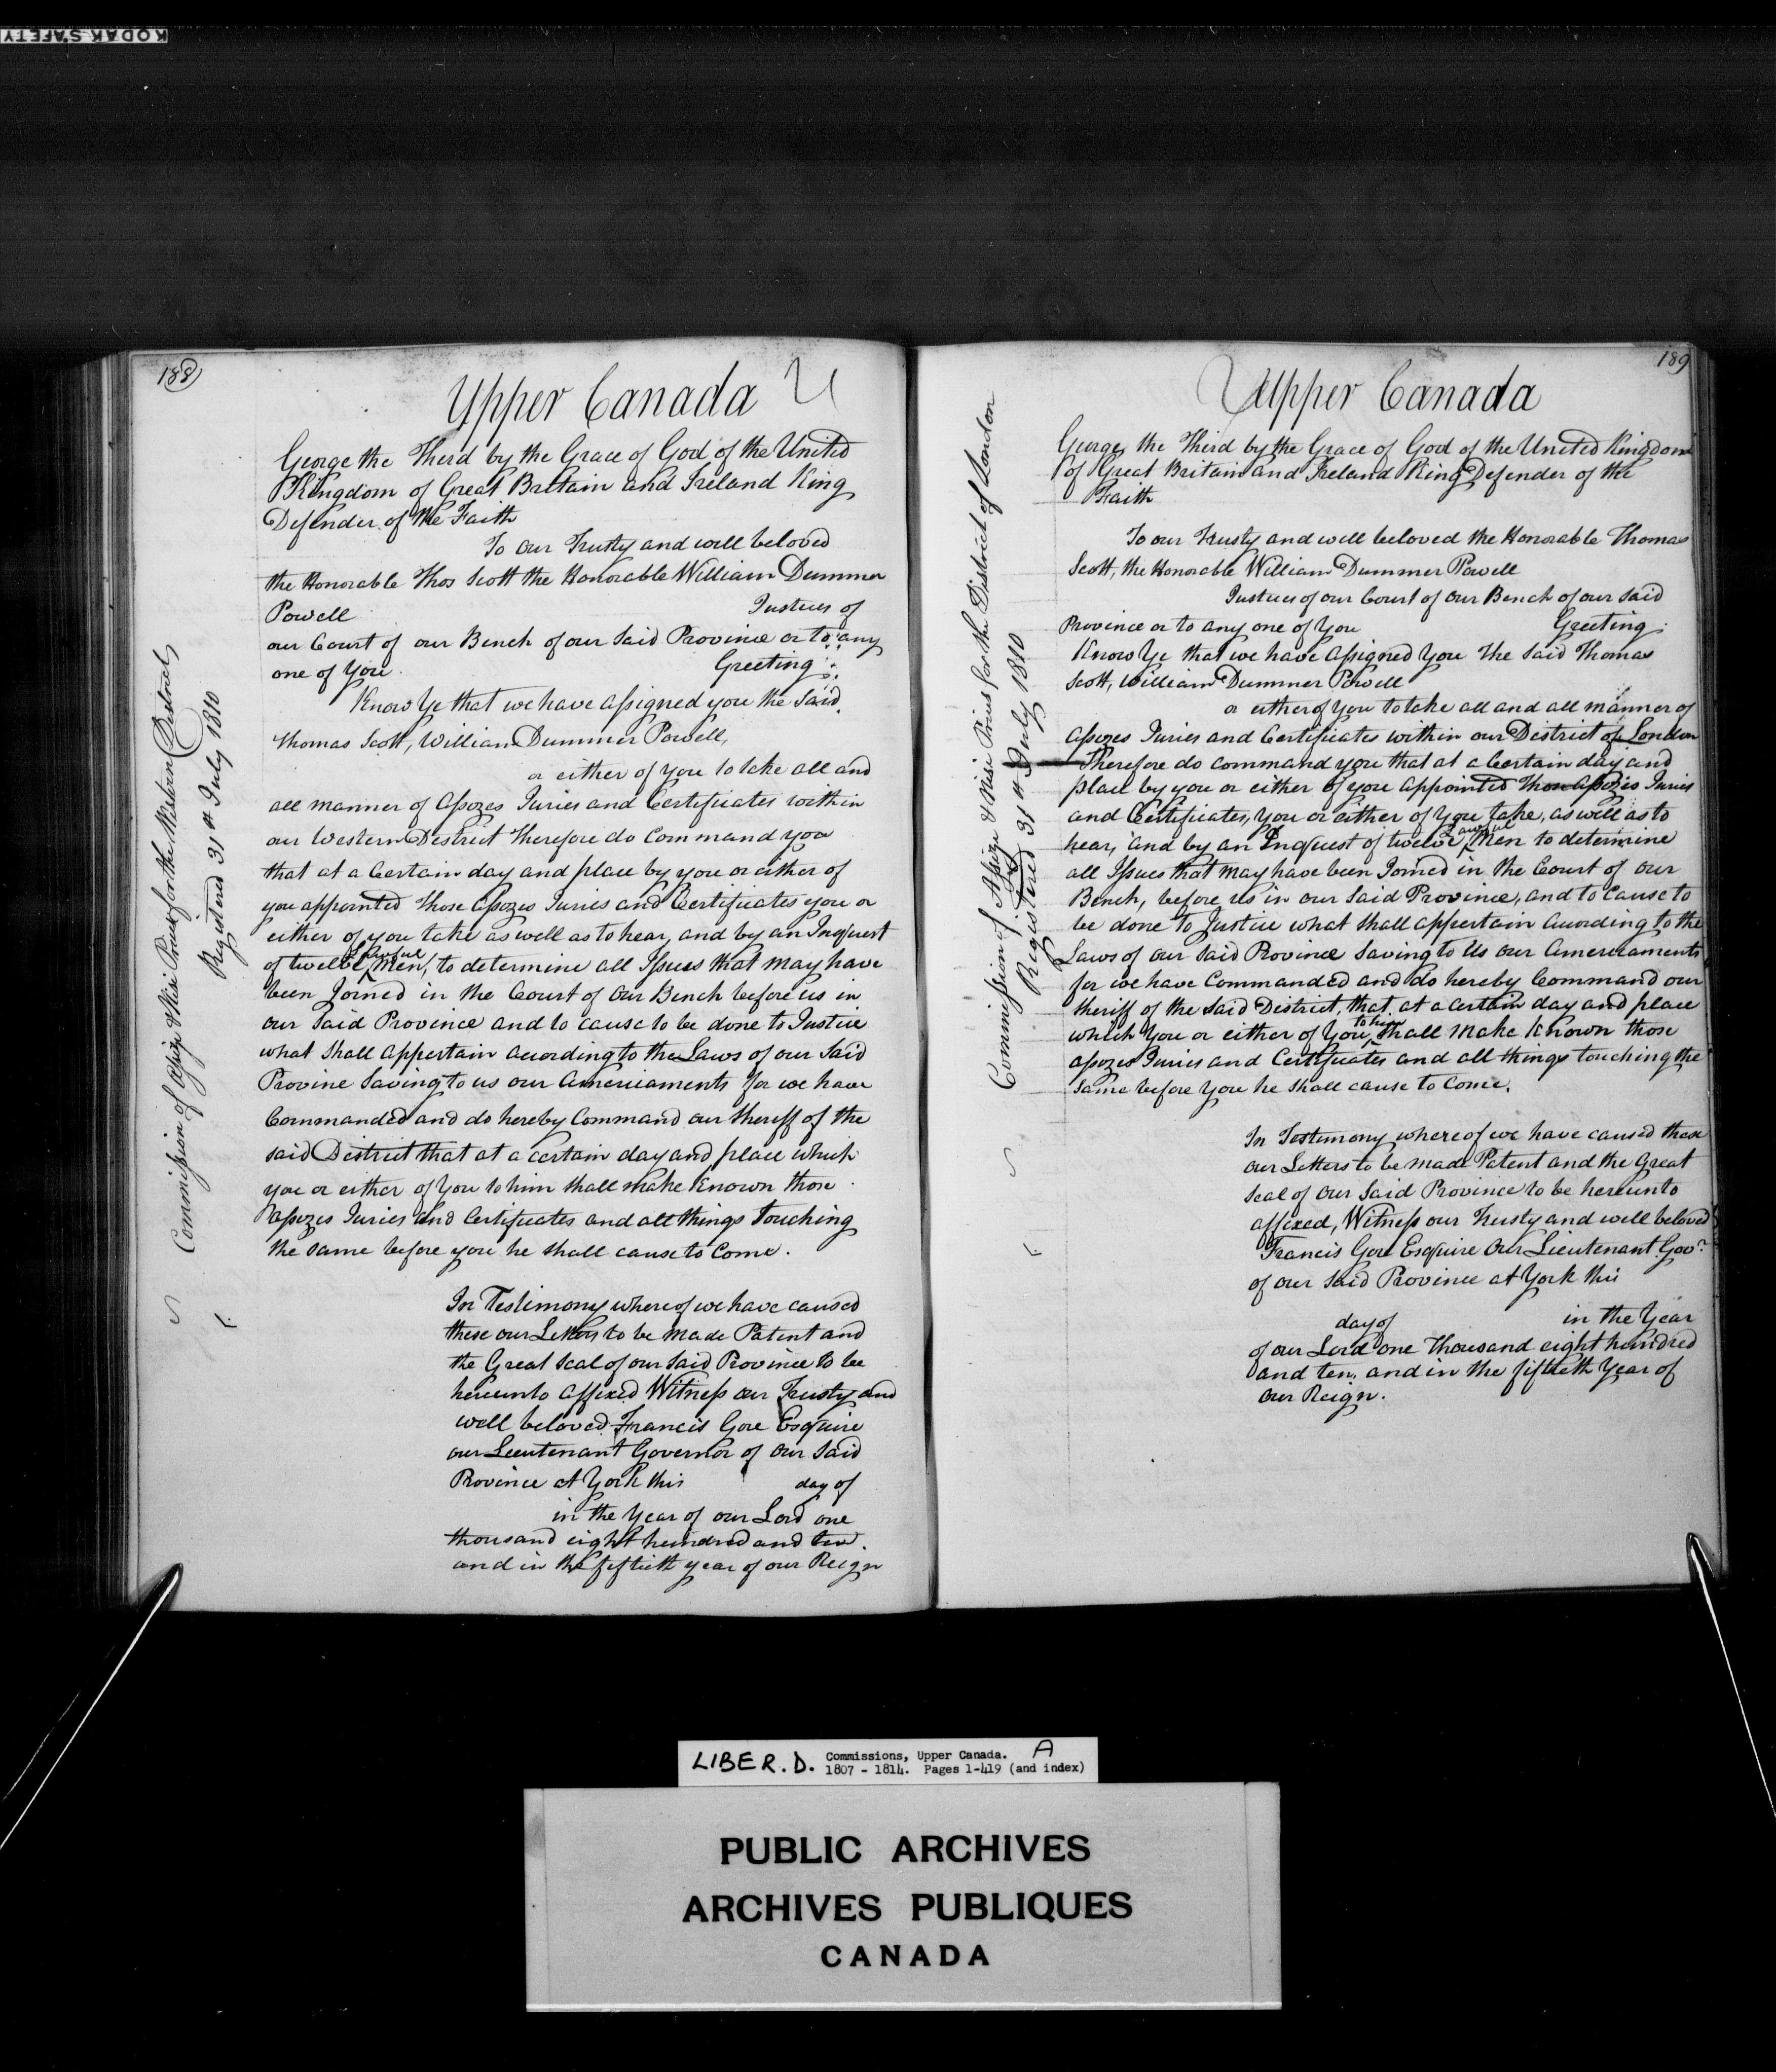 KODAK SAFETY
188
Upper Canada
George the Third by the Grace of God of the United
Kingdom of Great Britain and Ireland King
Defender of the Faith
To our Trusty and well beloved
the Honorable Thos Scott the Honorable William Dummer
Powell Justices of
our Court of our Bench of our Said Province or to any
one of you Greeting
Know Ye that we have assigned you the Said
Thomas Scott, William Dummer Powell,
or either of you to take all and
all manner of Assizes Juries and Certificates within
our Western District Therefore do Command you
that at a Certain day and place by you or either of
you appointed those Assizes Juries and Certificates you or
either of you take as well as to hear, and by an Inquest
of twelve Lawful Men, to determine all Issues that may have
been Joined in the Court of Our Bench before us in
our Said Province and to cause to be done to Justice
what Shall appertain according to the Laws of our Said
Provine Saving to us our Amerciaments for we have
Commanded and do hereby Command our Sheriff of the
said District that at a certain day and place which
you or either of You to him shall make known those
Assizes Juries and Certificates and all things touching
the Same before you he shall cause to Come.
In Testimony whereof we have caused
these our Letters to be made Patent and
the Great Seal of our Said Province to be
hereunto affixed Witness our Trusty and
well beloved Francis Gore Esquire
our Lieutenant Governor of our Said
Province at York this day of
in the Year of our Lord one
thousand eight hundred and ten.
and in the fiftieth year of our Reign
Commission of Assize & Nisi Prius for the Western District
Registered 31st July 1810
189
Upper Canada
George the Third by the Grace of God of the United Kingdom
of Great Britain and Ireland King Defender of the
Faith
To our Trusty and well beloved the Honorable Thomas
Scott, the Honorable William Dummer Powell
Justices of our Court of our Bench of our Said
Province or to any one of You Greeting
Know Ye that we have Assigned You the Said Thomas
Scott, William Dummer Powell
or either of you to take all and all manner of
Assizes Juries and Certificates within our District of London
Therefore do command you that at a Certain day and
place by you or either of you appointed those Assizes Juries
and Certificates, You or either of You take, as well as to
hear, and by an Inquest of twelve Lawful Men to determine
all Issues that may have been Joined in the Court of our
Bench, before us in our Said Province, and to Cause to
be done to Justice what shall appertain according to the
Laws of our Said Province Saving to Us our Amerciaments
for we have Commanded and do hereby Command our
Sheriff of the Said District, that at a certain day and place
which You or either of You, to him shall make known those
Assizes Juries and Certificates and all things touching the
Same before You he shall cause to Come.
In Testimony whereof we have caused these
our Letters to be made Patent and the Great
Seal of our Said Province to be hereunto
affixed, Witness our Trusty and well beloved
Francis Gore Esquire Our Lieutenant Govr
of our Said Province at York this
day of in the Year
of our Lord one thousand eight hundred
and ten, and in the fiftieth Year of
our Reign.
Commission of Assize & Nisi Prius for the District of London
Registered 31st July 1810
LIBER. D. Commissions, Upper Canada. A
1807 - 1814. Pages 1-419 (and index)
PUBLIC ARCHIVES
ARCHIVES PUBLIQUES
CANADA